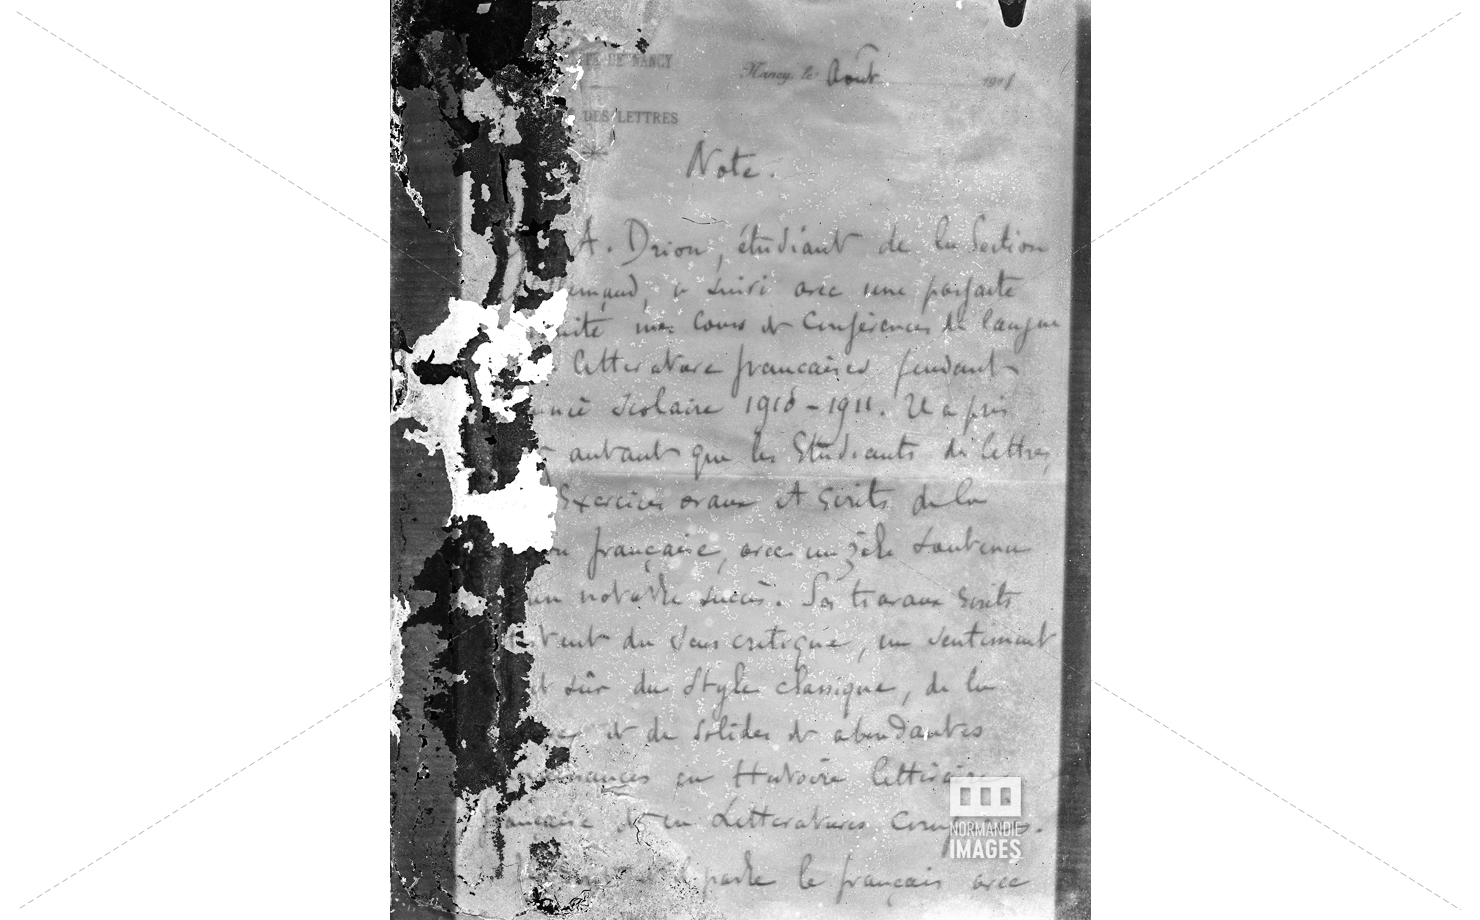 DE NANCY
Nancy, le Août 191
DES LETTRES
Note.
A. Drion, étudiant de la Section
a suivi avec une parfaite
mes Cours et Conférences de langue
littérature françaises pendant
scolaire 1910-1911. Il a pris
autant que les Etudiants de lettres,
Exercices oraux et écrits de la
française, avec un zèle soutenu
un notable succès. Ses travaux écrits
du sens critique, un sentiment
et sûr du style classique, de la
et de solides et abondantes
en Histoire littéraire
française et en Littératures
parle le français avec
NORMANDIE
IMAGES